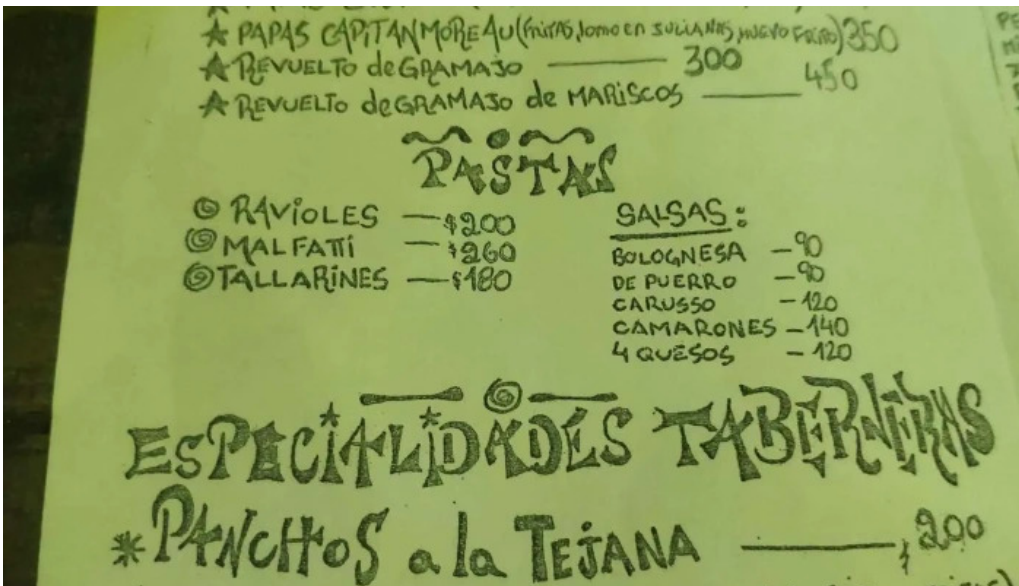 ★ PAPAS CAPITAN MOREAU (FRITAS, lomo en JULIANAS, HUEVO FRITO) 350
★ REVUELTO de GRAMAJO —— 300
★ REVUELTO de GRAMAJO de MARISCOS —— 450
PASTAS
RAVIOLES — $200
MALFATTI — $260
TALLARINES — $180
SALSAS:
BOLOGNESA — 90
DE PUERRO — 90
CARUSSO - 120
CAMARONES - 140
4 QUESOS - 120
ESPECIALIDADES TABERNERAS
* PANCHOS a la TEJANA —— $ 200